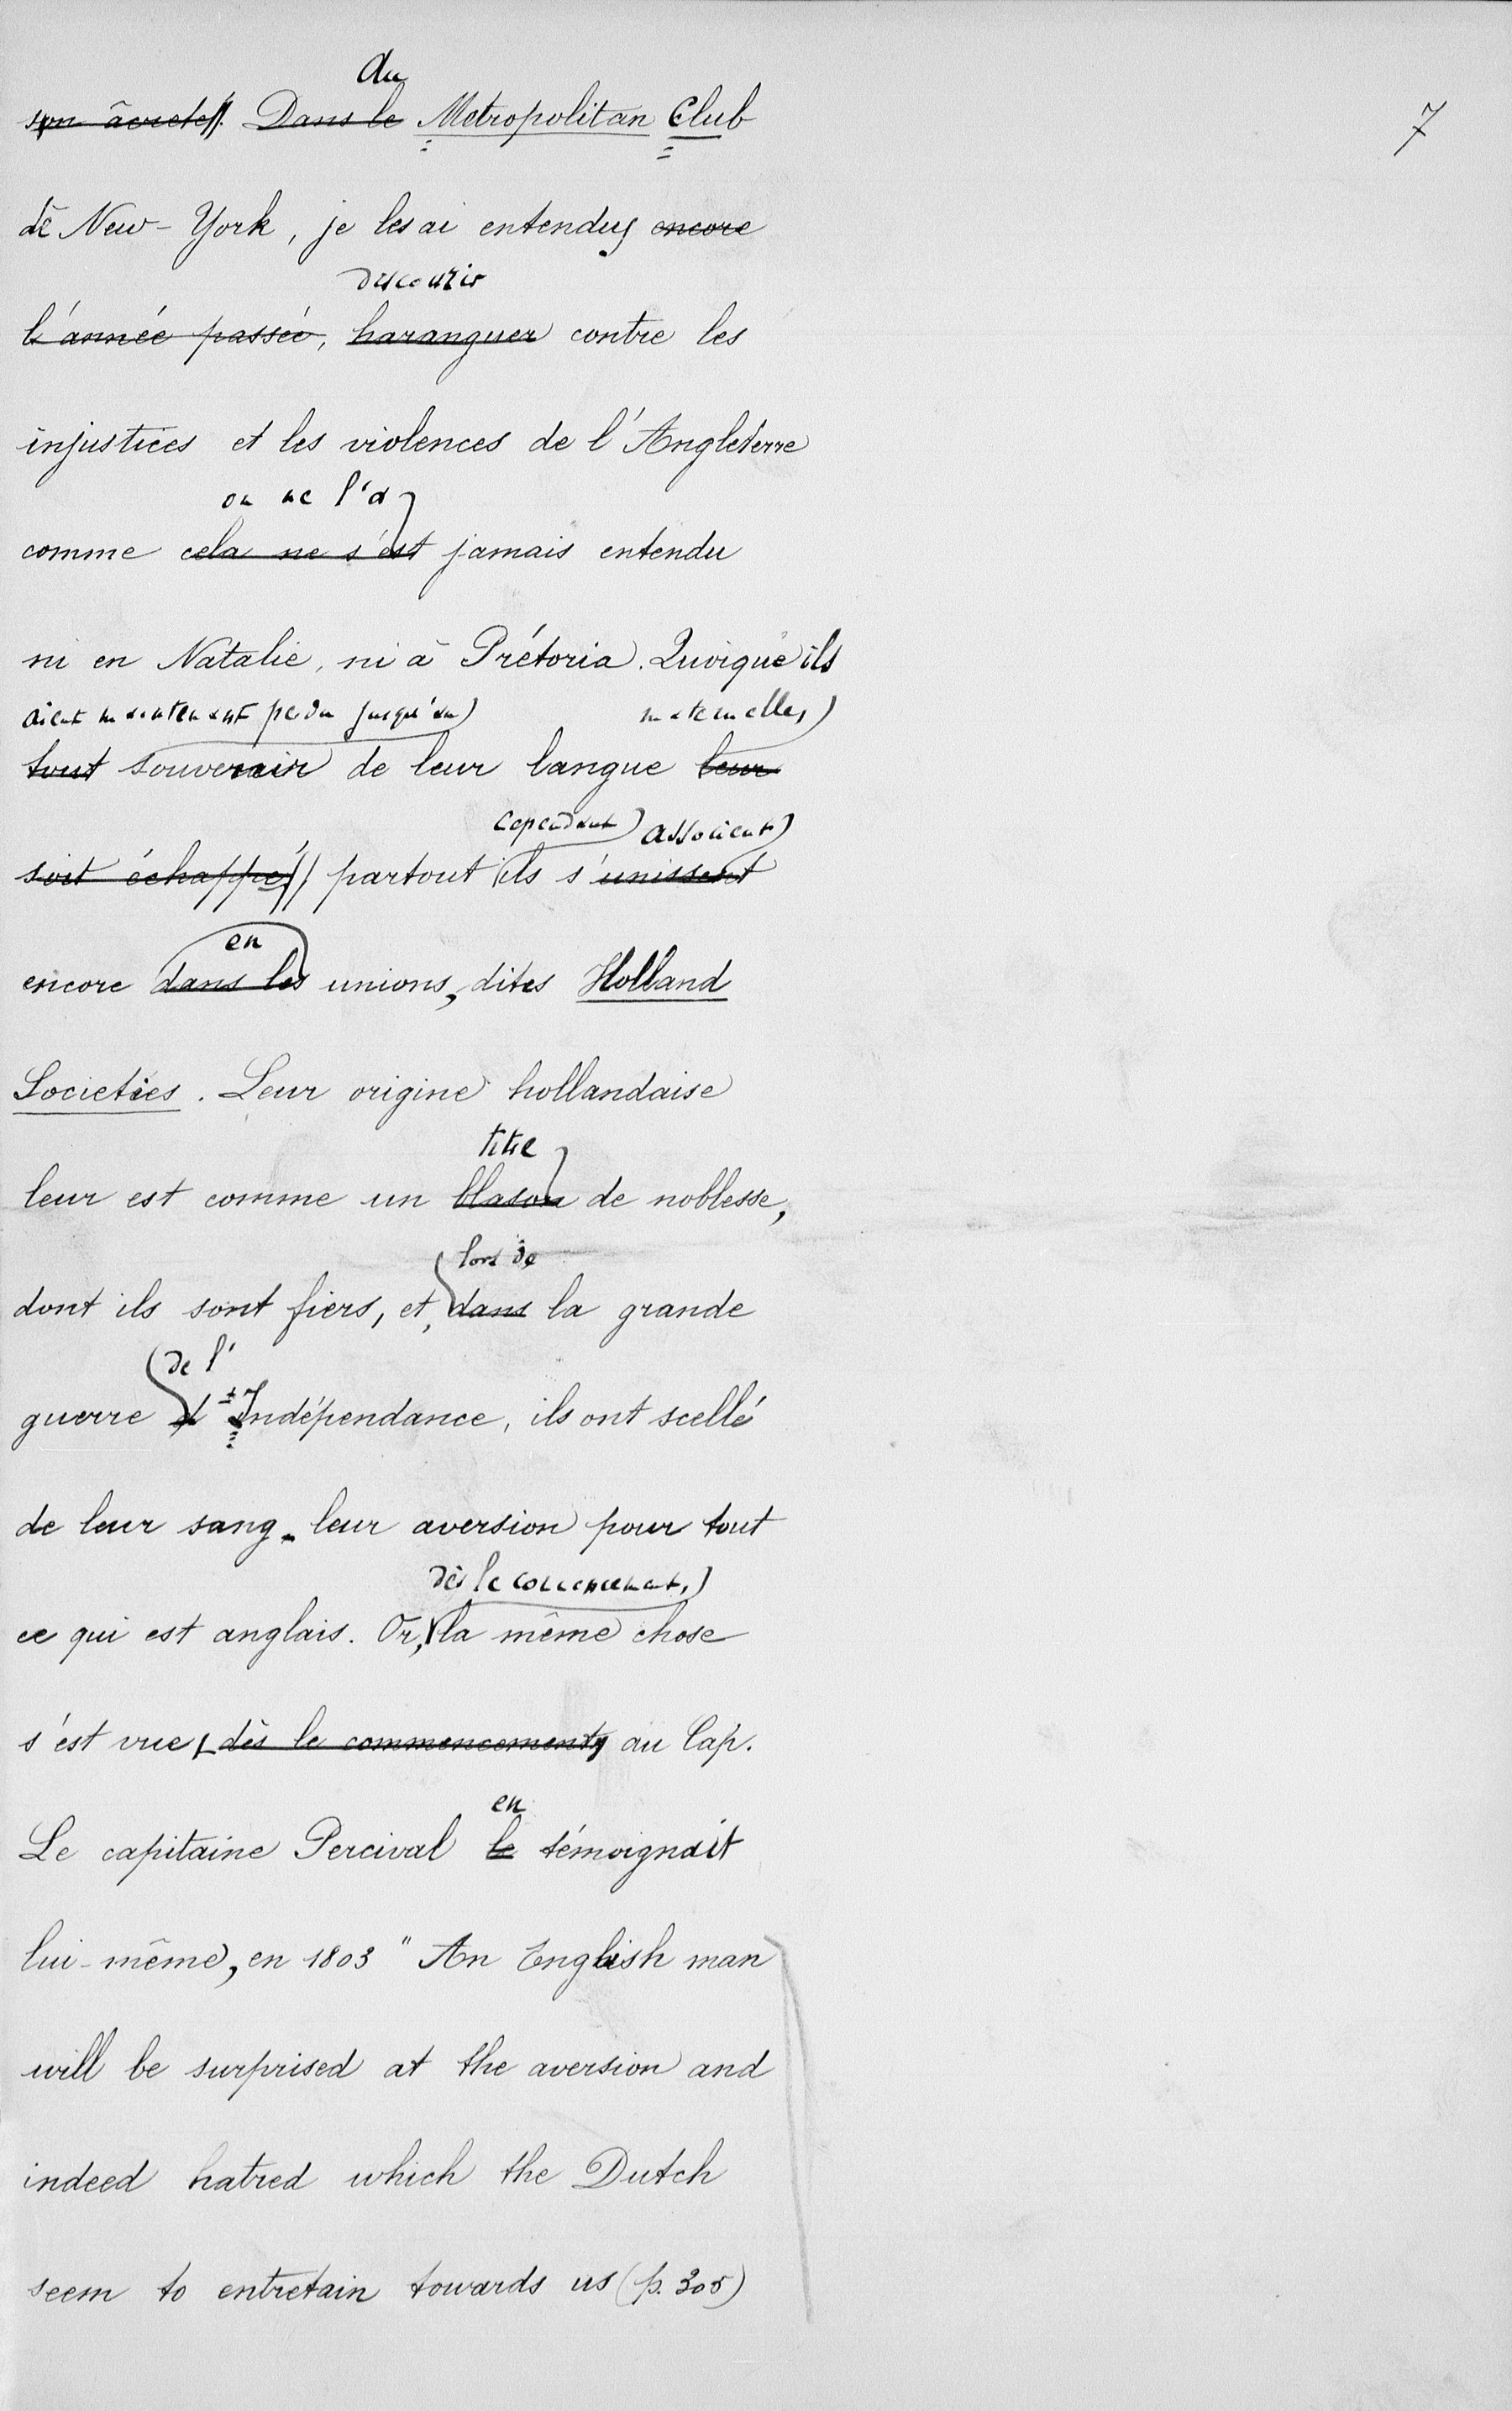 Au
son âcreté. Dans le Metropolitan Club
7
de New-York, je les ai entendus encore
discourir
l'année passée, haranguer contre les
injustices et les violences de l'Angleterre
on ne l'a
comme cela ne s'est jamais entendu
ni en Natalie, ni à Prétoria. Quoique ils
aient maintenant perdu jusqu'au maternelle,
tout souvenir de leur langue leur
cependant associent
soit échappé, partout ils s'unissent
en
encore dans les unions, dites Holland
Societies. Leur origine hollandaise
titre
leur est comme un blason de noblesse,
lors de
dont ils sont fiers, et, dans la grande
de l'
guerre d'Indépendance, ils ont scellé
de leur sang leur aversion pour tout
dès le commencement,
ce qui est anglais. Or, la même chose
s'est vue, dès le commencement, au Cap.
en
Le capitaine Percival le témoignait
lui-même, en 1803 " An English man
will be surprised at the aversion and
indeed hatred which the Dutch
seem to entretain towards us (p. 305)